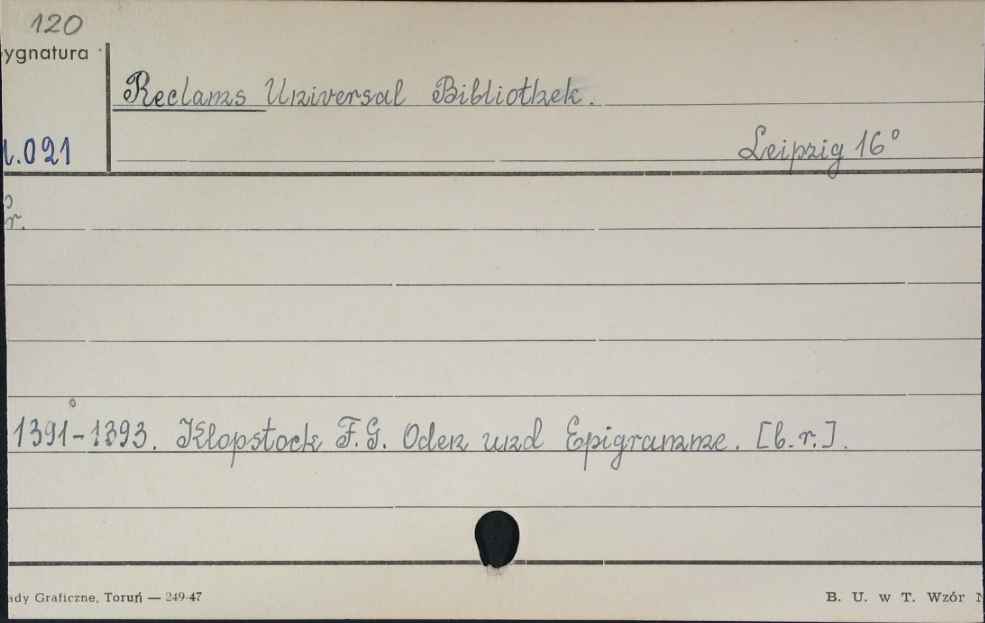 120
ygnatura
Reclams Universal Bibliothek.
.021
Leipzig 16°
r.
1391-1393. Klopstock F.G. Oden und Epigramme. [b.r.].
ady Graficzne, Toruń — 249-47
B. U. w T. Wzór